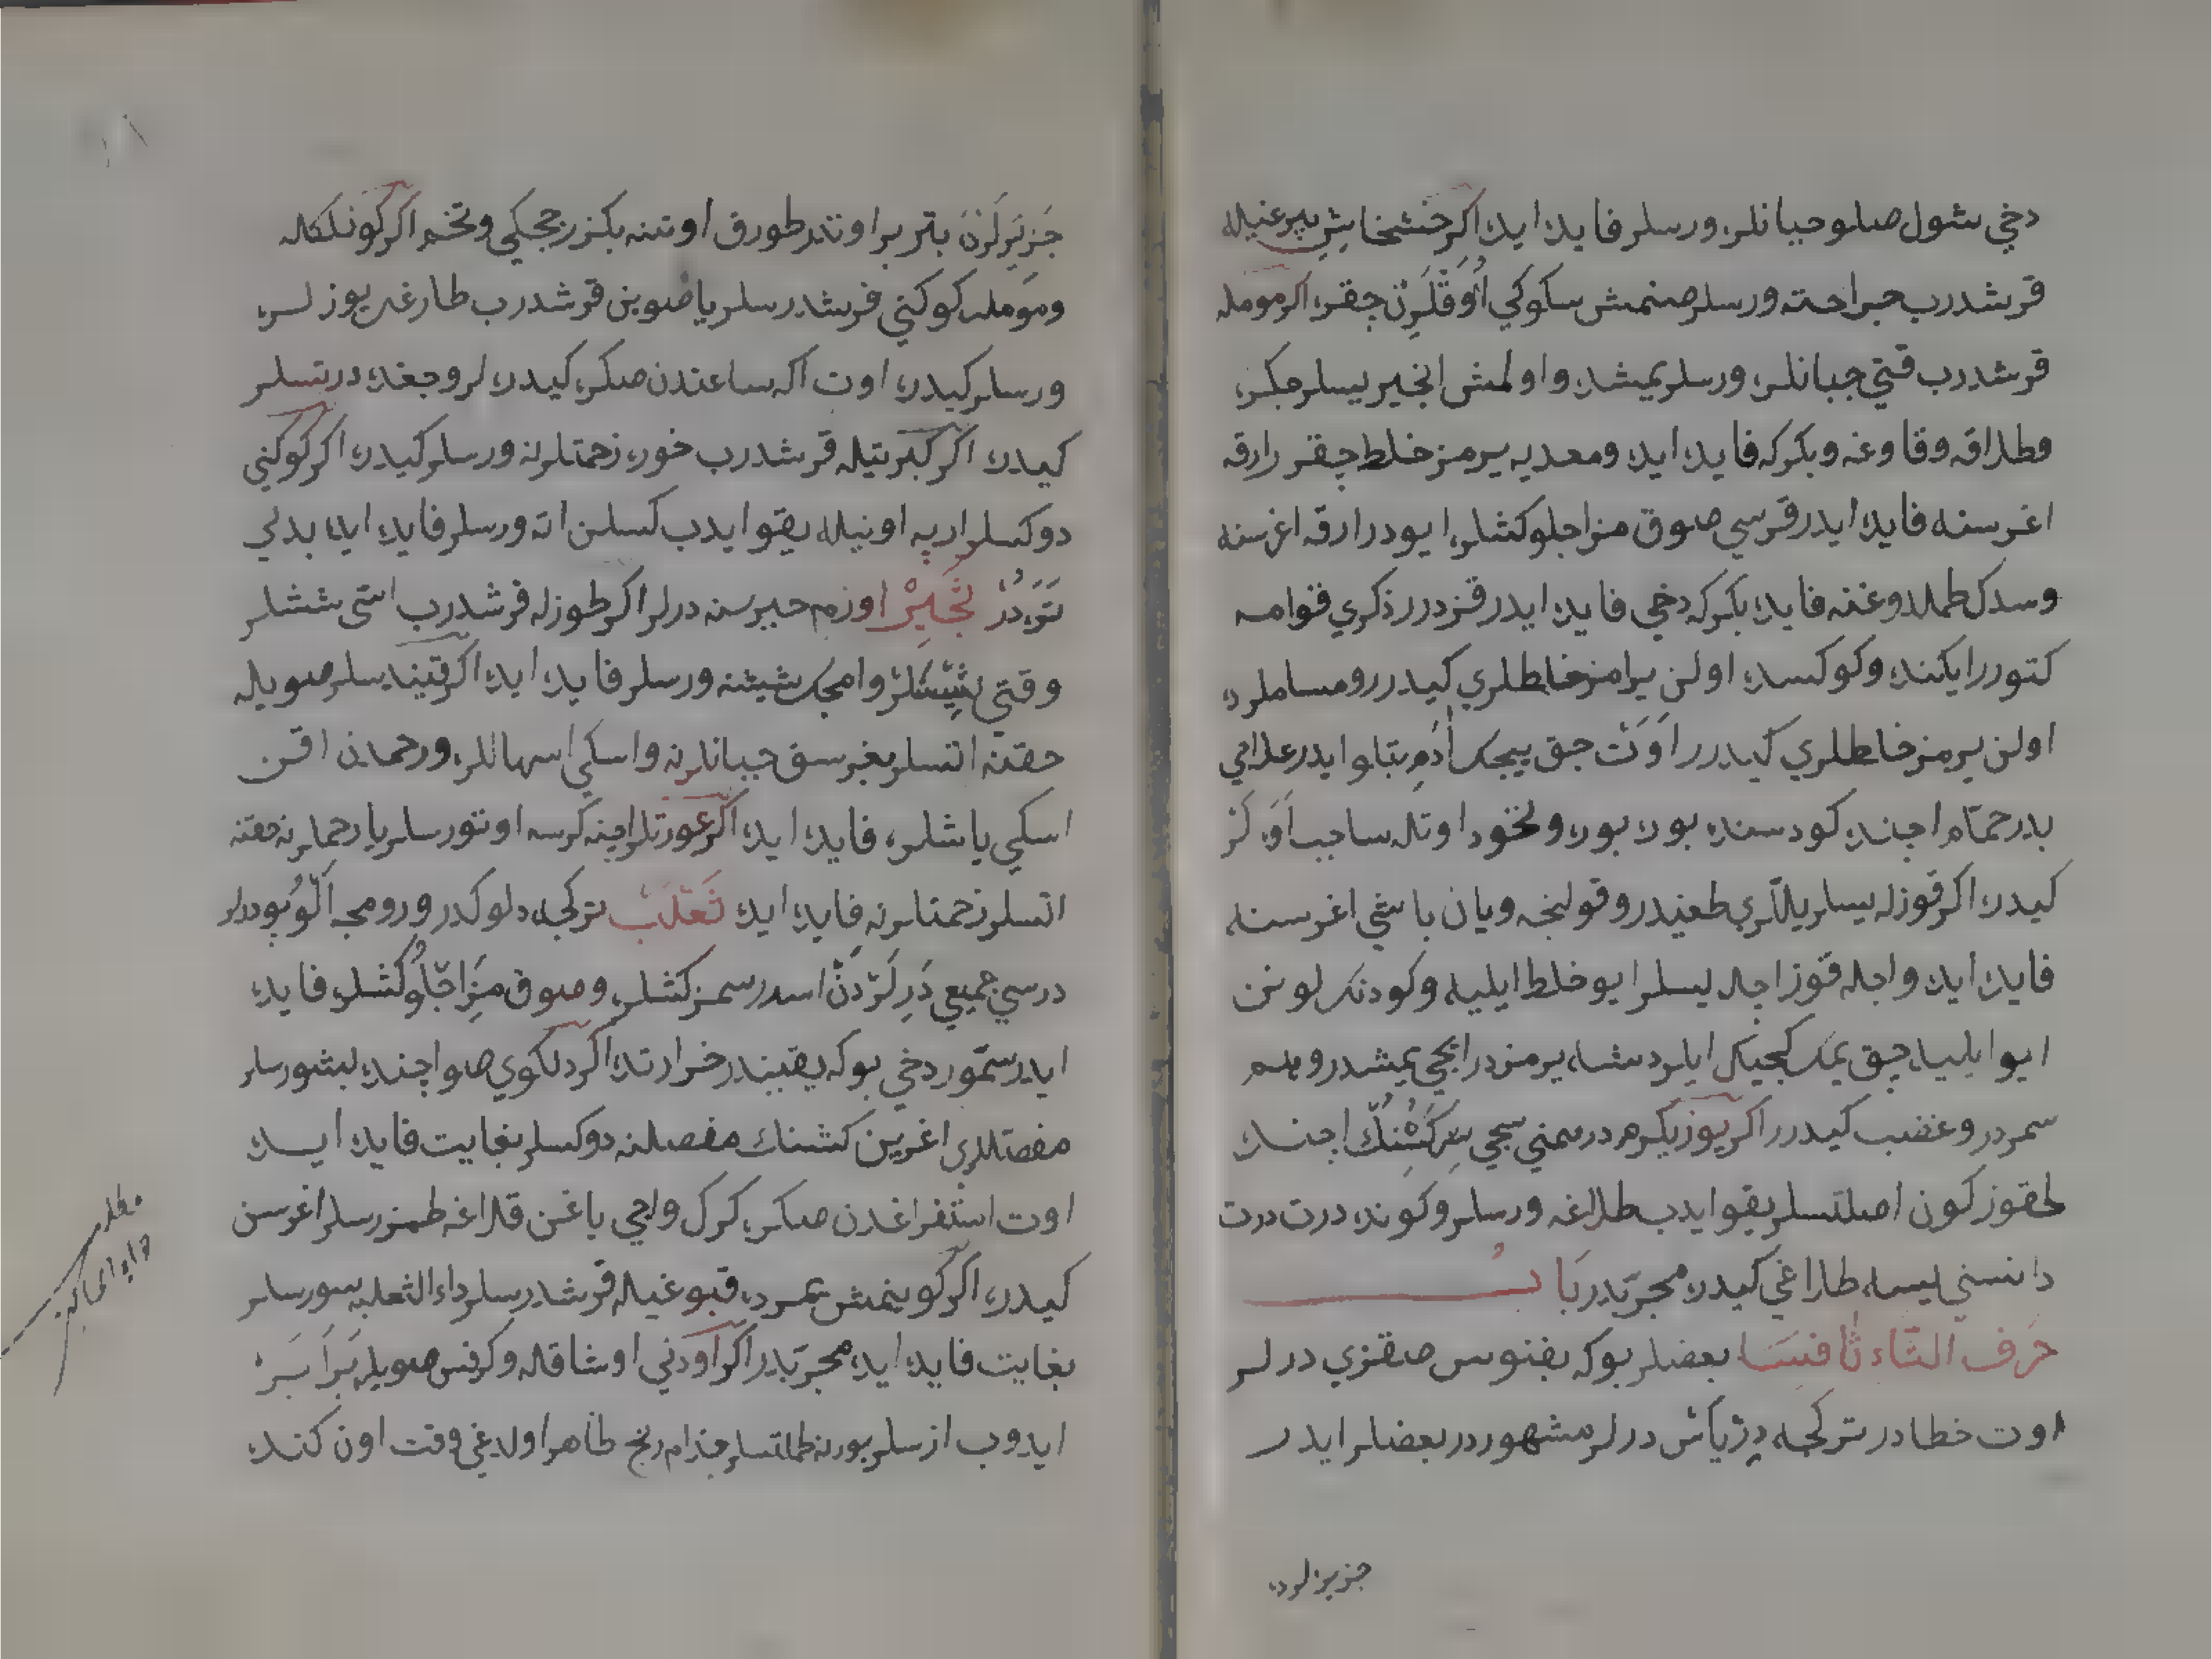 دخي شول صلو جبانلره ورسلر فايده ايده اكر خشخاش پيرغيله
قرشدرب جراحته ورسلر صنمش سكوكي اوقلرن چقره اكر مومله
قرشدرب قتي جبانلره ورسلر يمشده واولمش انجير يسلر جكره
وطلاقه وقاوغه وبكركه فايده ايده ومعديه يرمز خلط چقر رارقه
اغرسنه فايده ايدر قرسي صوق مزاجلو كشلره ايودر ارقه اغرسنه
وسدك طملدوغنه فايده بكركه دخي فايده ايدر قزدرر ذكري قوامه
كتورر ايكنده وكوكسده اولن يرامز خلطلري كيدرر ومساملرده
اولن يرمز خلطلري كيدرر اوت چق ييجك ادم بتلو ايدر علاجي
بدر حمام اجنده كودسنده بوره بوره ونخود اوتله ساجب اوه لر
كيدره اكر قوزله يسلر يللري طغيدر وقولنجه ويان باشي اغرسنه
فايده ايده واجله قوز اجله يسلر ايو خلط ايليه وكودنك لونن
ايو ايليه چق يمك كجيك ايلر دشه يرمزدر ايجي يمشدر وهم
سمردر وغضب كيدرر اكر يوز يكرم درهمني سجي سركنك اجنده
طقوز كون اصلتسلر يقو ايدب طلاغه ورسلر وكونده درت درت
دانسني ييسه طلاغي كيدره مجربدر باب
حرف الثاء ثافسيا بعضلر بوكه يغنوس صقزي درلر
اوت خطادر تركجه درياش درلر مشهوردر بعضلر ايدر
جزيرلرده
جزيرلرن بتر بر اوتدر طورق اوتنه بكزر ججكي وتخم اكر كونلكله
ومومله كوكني قرشدرسلر ياضوين قرشدرب طارغي يوزلره
ورسلر كيدره اوت اكه ساعتدن صكره كيدره لر وجغنده درتسلر
كيدره اكر كبرتيله قرشدرب خوره زحمتلرنه ورسلر كيدره اكر كوكني
دوكسلر ارپه اونيله يقو ايدب كسلن اته ورسلر فايده ايده بدلي
تودر ثجير اوزم جبرسنه درلر اكر طوزله قرشدرب استي ششلر
وقتي ششلر وامجك ششنه ورسلر فايده ايده اكر قيندسلر صويله
حقنه اتسلر بغرسق جبانلرنه واسكي اسهاللره ورحمدن اقن
اسكي ياشلره فايده ايده اكر عورتلر اجنه كرسه اوتورسلر يا رحملرنه حقنه
اتسلر زحمتلرنه فايده ايده ثعلب تركجه دلوكدر ورومجه الوبو درلر
درسي جميع درلردن اسدر سمز كشلره وصوق مزاجلو كشلره فايده
ايدر سمور دخي بوكه يقيندر حرارتده اكر دلكوي صو اجنده بشورسلر
مفصللري اغرين كشنك مفصلنه دوكسلر بغايت فايده ايده
اوت استفراغدن صكره كرك واجي ياغن قلاغه طمزرسلر اغرسن
كيدره اكر كوينمش يمرده قبوغيله قرشدرسلر داء الثعلبه سورسلر
بغايت فايده ايده مجربدر اكر اودني اوشاقله وكرفس صويله برابر
ايدوب ازسلر بورنه طملتسلر جذام رنج ظاهر اولدغي وقت اون كنده